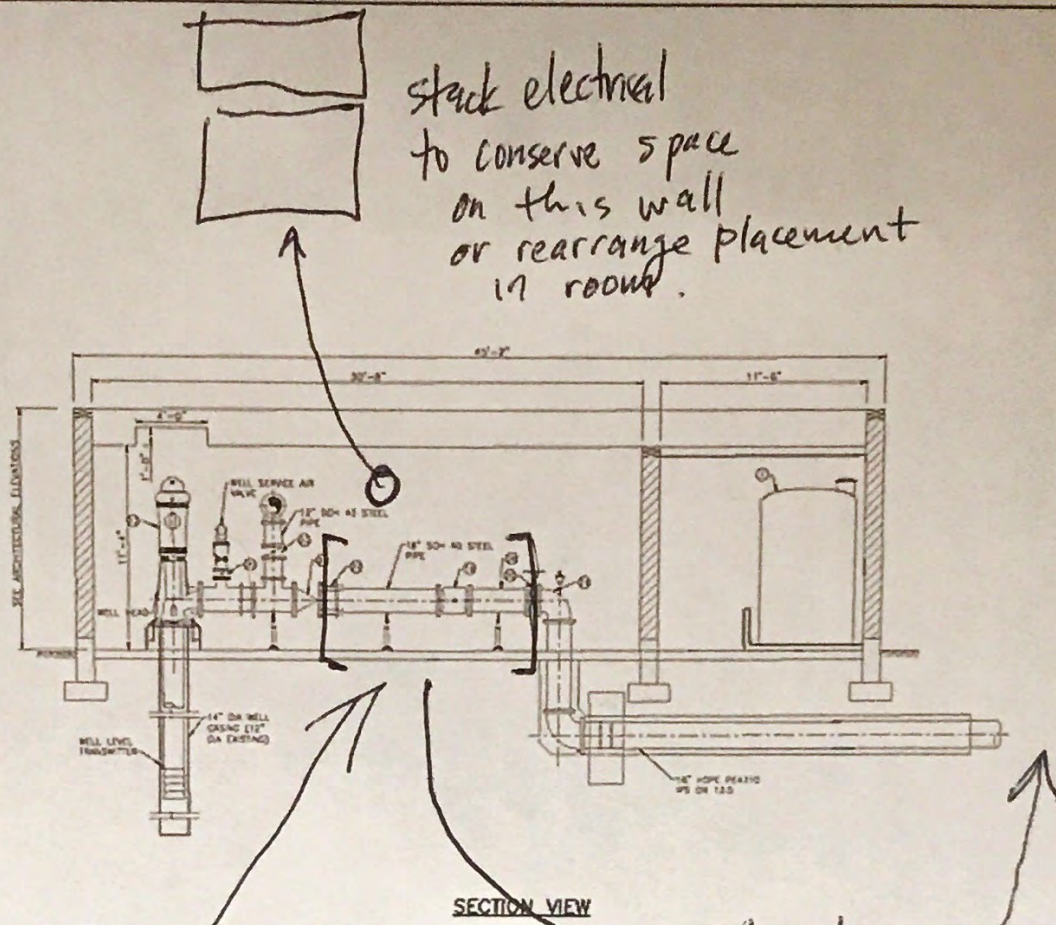 stack electrical
to conserve space
on this wall
or rearrange placement
in room.
30'-8"
11'-6"
4'-0"
1'-0"
11'-4"
SEE ARCHITECTURAL ELEVATIONS
WELL SERVICE AIR
VALVE
12" SCH 40 STEEL
PIPE
16" SCH 40 STEEL
PIPE
WELL HEAD
14" DIA WELL
CASING (12"
DIA EXISTING)
WELL LEVEL
TRANSMITTER
16" HDPE PE4710
IPS DR 13.5
SECTION VIEW